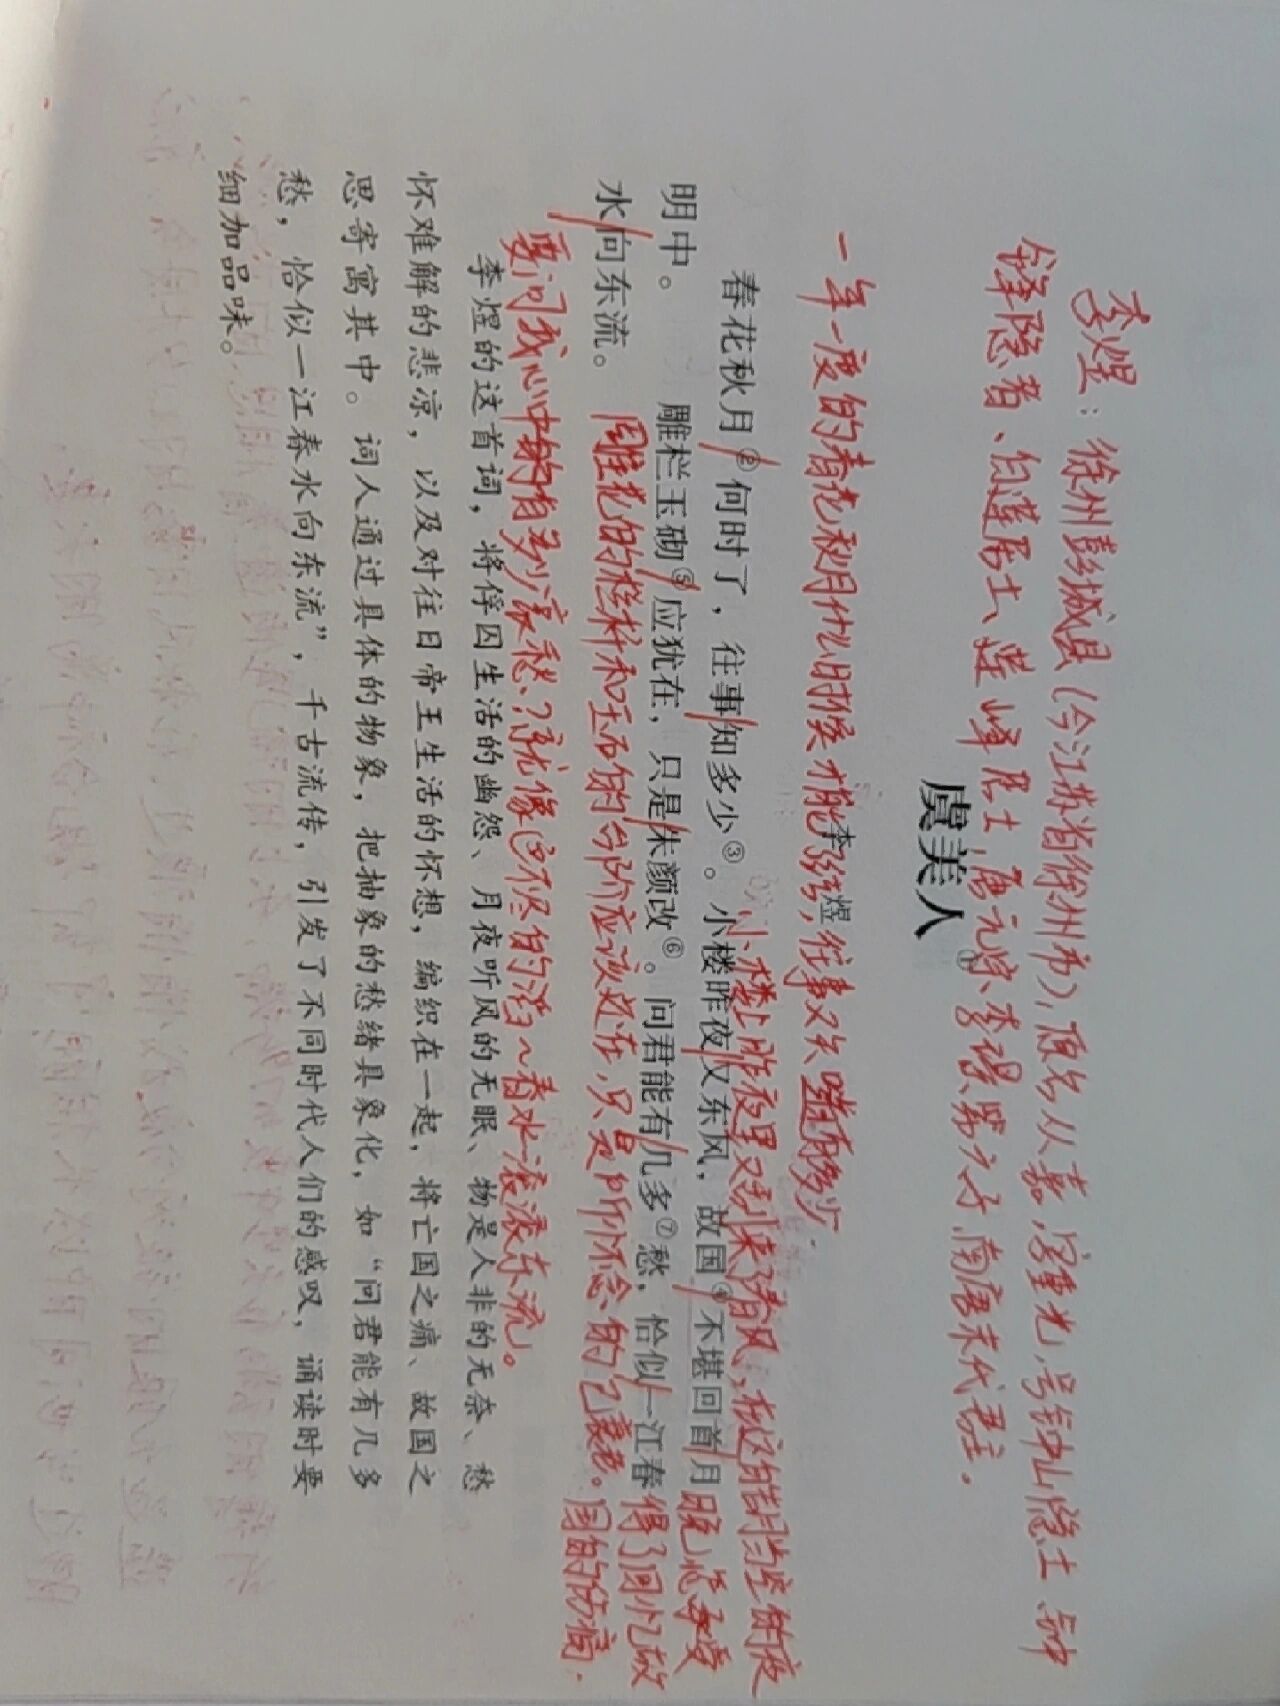 李煜：徐州彭城县（今江苏省徐州市），原名从嘉，字重光，号钟山隐士、钟
锋隐者、白莲居士、莲峰居士，唐元宗李璟第六子，南唐末代君主。
虞美人①
李煜
一年一度的春花秋月什么时候才能了结，往事又知道多少.
春花秋月②何时了，往事知多少③。小楼昨夜又东风，故国④不堪回首月
小楼上昨夜里又刮来了春风，在这皓月当空的夜
晚怎承受
明中。
雕栏玉砌⑤应犹在，只是朱颜改⑥。问君能有几多⑦愁，恰似一江春
得了回忆故
水向东流。
雕花的栏杆和玉石的台阶应该还在，只是所怀念的已衰老。
国的伤痛.
要问我心中的有多少哀愁？就像这不尽的滔～春水滚滚东流。
李煜的这首词，将俘囚生活的幽怨、月夜听风的无眠、物是人非的无奈、愁
怀难解的悲凉，以及对往日帝王生活的怀想，编织在一起，将亡国之痛、故国之
思寄寓其中。词人通过具体的物象，把抽象的愁绪具象化，如“问君能有几多
愁，恰似一江春水向东流”，千古流传，引发了不同时代人们的感叹，诵读时要
细加品味。